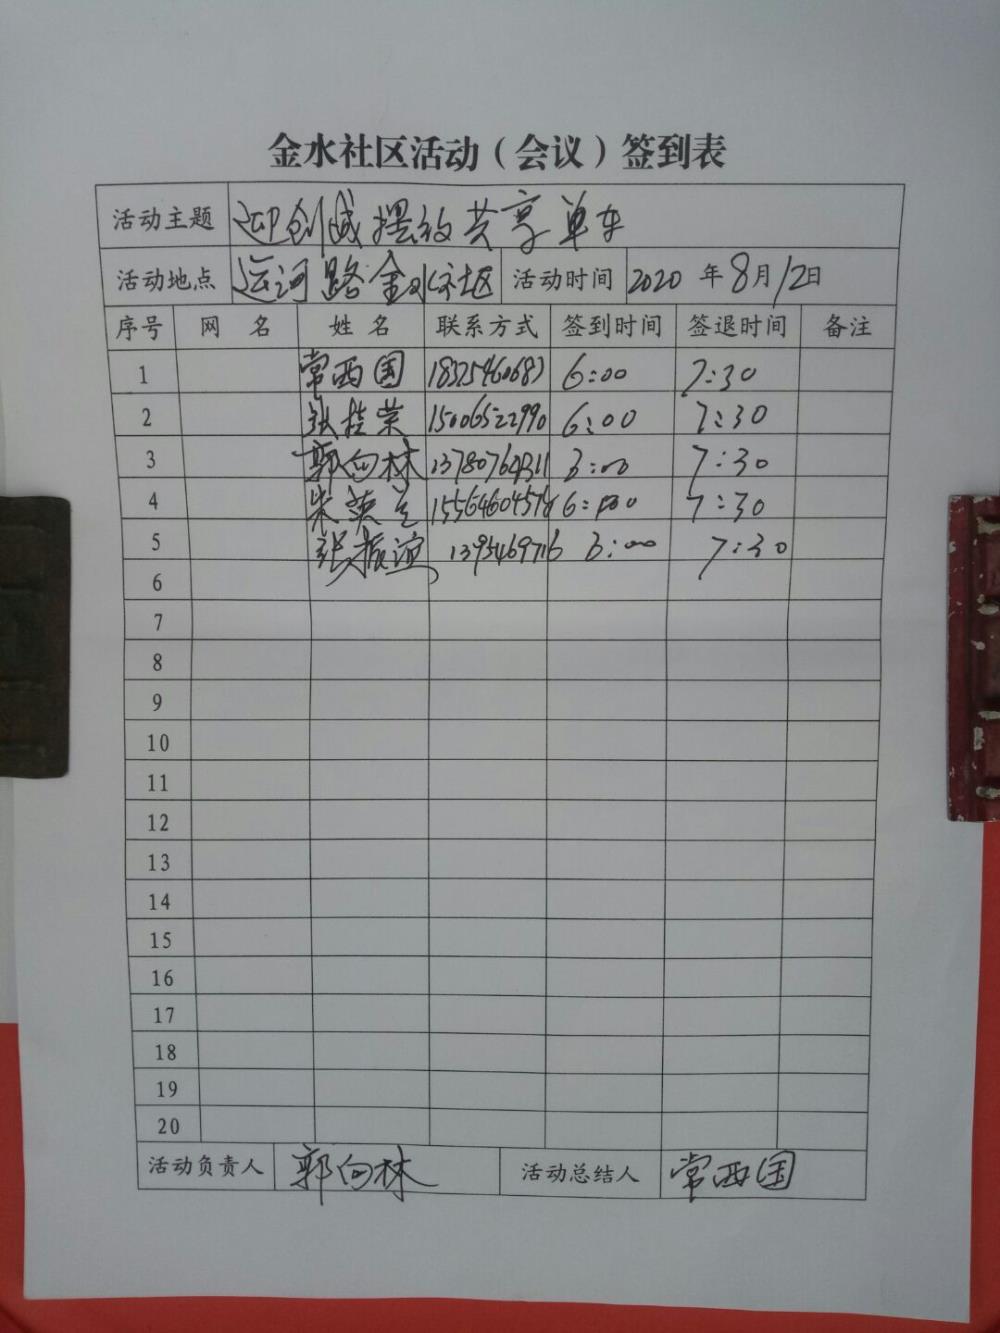 金水社区活动（会议）签到表
活动主题 迎创城摆放共享单车
活动地点 运河路金水社区 活动时间 2020 年 8月12日
序号 网 名 姓 名 联系方式 签到时间 签退时间 备注
1 常西国 6:00 7:30
2 张桂荣 15006522990 6:00 7:30
3 郭向林 13780764311 3:00 7:30
4 朱英兰 6:00 7:30
5 张振谊 1395469716 3:00 7:30
6
7
8
9
10
11
12
13
14
15
16
17
18
19
20
活动负责人 郭向林 活动总结人 常西国